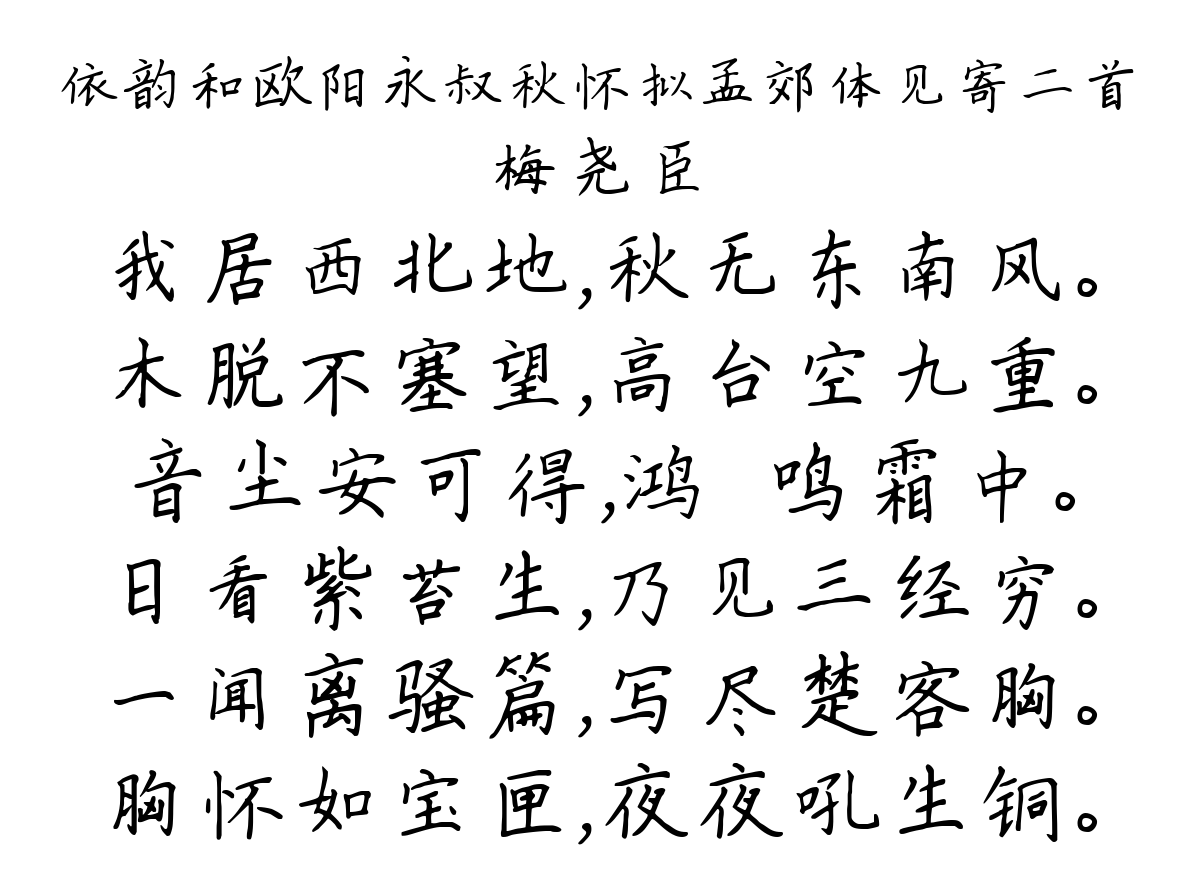 依韵和欧阳永叔秋怀拟孟郊体见寄二首
梅尧臣
我居西北地,秋无东南风。
木脱不塞望,高台空九重。
音尘安可得,鸿 鸣霜中。
日看紫苔生,乃见三经穷。
一闻离骚篇,写尽楚客胸。
胸怀如宝匣,夜夜吼生铜。